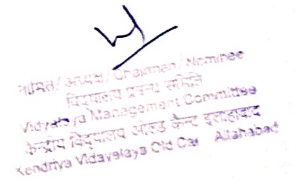 नामित/ अध्यक्ष/ Chairman/ Nominee
विद्यालय प्रबन्ध समिति
Vidyalaya Management Committee
केन्द्रीय विद्यालय ओल्ड कैन्ट इलाहाबाद
Kendriya Vidayalaya Old Cantt Allahabad